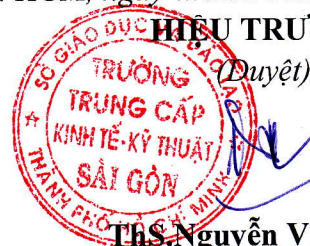 HIỆU TRƯ
(Duyệt)
SỞ GIÁO DỤC
TRƯỜNG
TRUNG CẤP
KINH TẾ-KỸ THUẬT
SÀI GÒN
THÀNH PHỐ HỒ CHÍ MINH
ThS.Nguyễn V